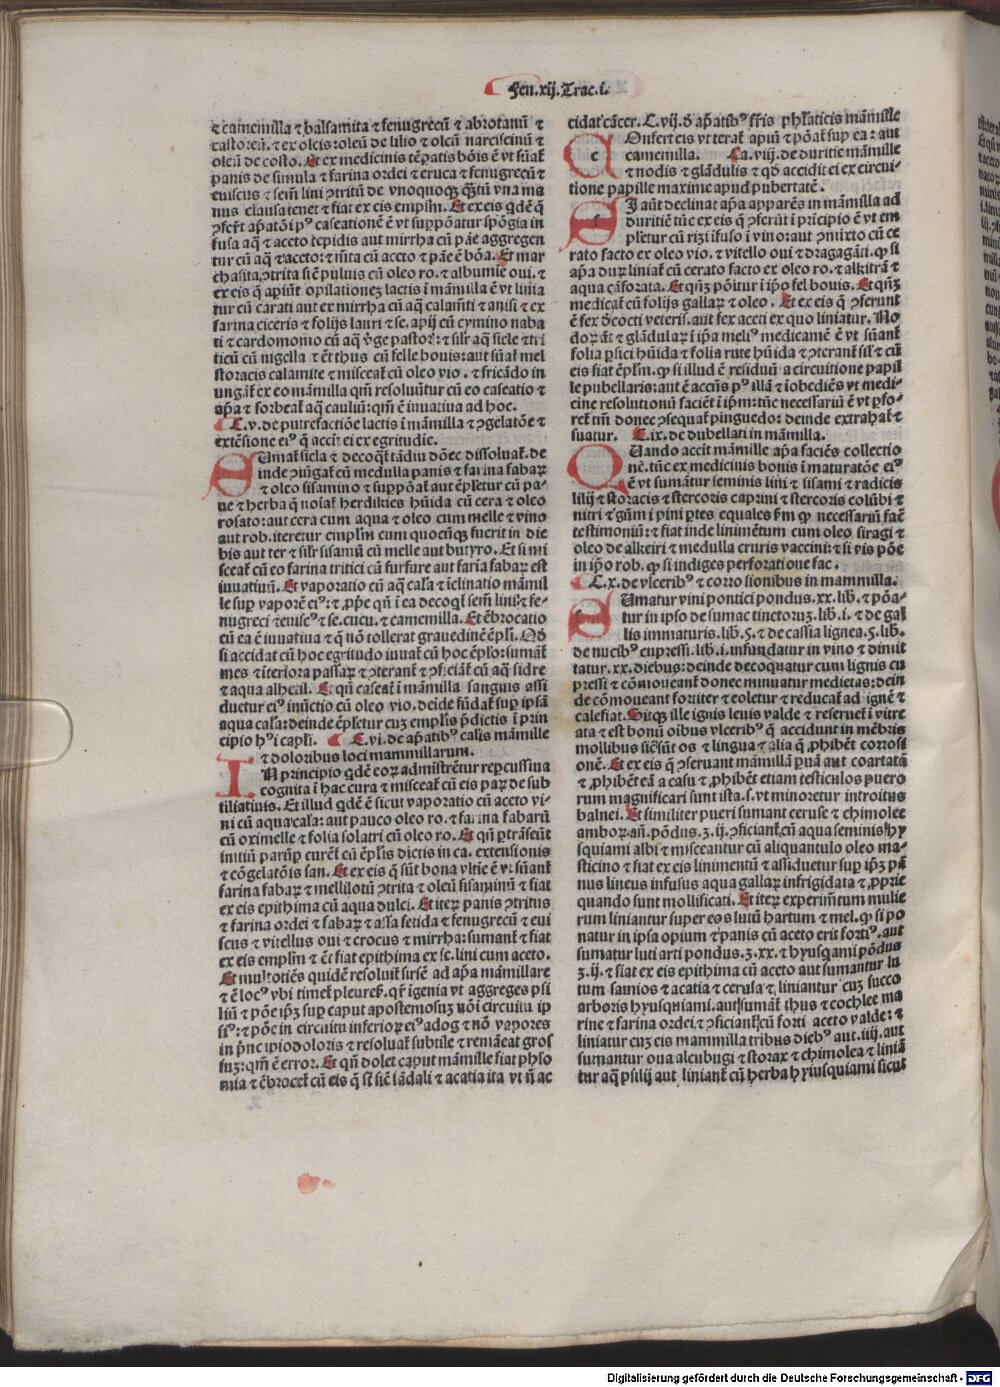 Fen.xij.Trac.i.
⁊ camemilla ⁊ balsamita ⁊ fenugrecū ⁊ abrotanū ⁊
castoreū. ⁊ ex oleis: oleū de lilio ⁊ oleū narciscinū ⁊
oleū de costo. Et ex medicinis tēꝑatis bōis ē vt sūat̄
panis de simula ⁊ farina ordei ⁊ eruca ⁊ fenugrecū ⁊
euiscus ⁊ sem̄ lini ꝯtritū de vnoquoqꝫ q̄ꝫtū vna ma
nus clausa tenet ⁊ fiat ex eis emplm̄. Et ex eis qdē q̄
fusa aqꝫ ⁊ aceto tepidis aut mirrha cū pāe aggregen
tur cū aqꝫ ⁊ aceto: ⁊ mīta cū aceto ⁊ pāe ē bōa. Et mar
chasita ꝯtrita sīē puluis cū oleo ro. ⁊ albumīe oui. ⁊
ex eis q̄ apiūt opilationeꝫ lactis ī māmilla ē vt linia
tur cū carati aut ex mirrha cū aqꝫ calamīti ⁊ anisi ⁊ ex
farina ciceris ⁊ folijs lauri ⁊ se. apij cū cymino naba
ticū cū nigella ⁊ ē thus cū felle bouis: aut sūat̄ mel
storacis calamite ⁊ misceat̄ cū oleo vio. ⁊ fricādo in
ungāt̄ ex eo māmilla qm̄ resoluūtur cū eo caseatio ⁊
ap̄a ⁊ sorbeat̄ aqꝫ cauliū: qm̄ ē iuuatiua ad hoc.
C.v. de putrefactiōe lactis ī māmilla ⁊ ꝯgelatōe ⁊
extēsione eiꝰ q̄ accīt ei ex egritudie.
SUmat̄ sicla ⁊ decoq̄t̄ tādiu dōec dissoluat̄. de
inde ꝯiūgat̄ cū medulla panis ⁊ farina fabaꝝ
⁊ oleo sisamino ⁊ suppōat̄ aut ēpletur cū pa-
ne ⁊ herba q̄ noīat̄ herdikies hūida cū cera ⁊ oleo
rosato: aut cera cum aqua ⁊ oleo cum melle ⁊ vino
aut rob. iteretur emplm̄ cum quocūqꝫ fuerit in die
bis aut ter ⁊ silr̄ sisamū cū melle aut butyro. Et si mi
sceat̄ cū eo farina tritici cū furfure aut faria fabaꝝ est
iuuatiuū. Et vaporatio cū aqꝫ cal̄a ⁊ īclinatio māmil
le sup̄ vaporē eiꝰ: ⁊ ꝓpe qn̄ ī ea decoqt̄ sem̄ lini: ⁊ fe-
nugreci ⁊ euisci ⁊ se. cucu. ⁊ camemilla. Et ēbrocatio
cū ea ē iuuatiua ⁊ q̄ nō tollerat grauedinē ēplī. Qd̄
si accidat cū hoc egritudo iuuat̄ cū hoc ēplo: sumāt̄
⁊ aqua alheail. Et qn̄ caseat̄ ī māmilla sanguis assi
duetur eiꝰ inūctio cū oleo vio. deide fūdat̄ sup̄ ipsā
aqua cal̄a: deinde ēpletur cuꝫ emplis p̄dictis ī prin
cipio hꝰi capli. C.vi. de ap̄atibꝰ calis māmille
⁊ doloribus loci mammillarum.
IN principio qdē eoꝝ admistrētur reꝑcussiua
cognita ī hac cura ⁊ misceat̄ cū eis paꝝ de sub
tiliatiuis. Et illud qdē ē sicut vaporatio cū aceto vi-
ni cū aqua cal̄a: aut pauco oleo ro. ⁊ farina fabarū
cū oximelle ⁊ folia solatri cū oleo ro. Et qn̄ ꝑtrāseūt
initiū parūꝑ curēt̄ cū ēplis dictis in ca. extensionis
⁊ cōgelatōis san. Et ex eis q̄ sūt bona vltie ē vt sūat̄
farina fabaꝝ ⁊ mellilotū ꝯtrita ⁊ oleū sisaminū ⁊ fiat
ex eis epithima cū aqua dulci. Et iteꝝ panis ꝯtritus
⁊ farina ordei ⁊ fabaꝝ ⁊ assa fetida ⁊ fenugrecū ⁊ eui
scus ⁊ vitellus oui ⁊ crocus ⁊ mirrha: sumant̄ ⁊ fiat
ex eis emplm̄ ⁊ ēt fiat epithima ex se. lini cum aceto.
Et multotiēs quidē resoluit̄ sirsē ad ap̄a māmillare
⁊ ē locꝰ vbi timet̄ pleureſ. qr̄ īgenia vt aggreges psi
liū ⁊ pōe ip̄ꝫ suꝑ caput apostemosuꝫ nōī circuitu ip
siꝰ: ⁊ pōe in circuitu inferiori eiꝰ adog ⁊ nō vapores
in p̄ncipio doloris ⁊ resoluat̄ subtile ⁊ remāeat gros
suꝫ: qm̄ ē error. Et qn̄ dolet caput māmille fiat phlo
mia ⁊ ēbrocet̄ cū eis q̄ sīt sīē sādali ⁊ acatia ita vt ij ac
cidat cācer. C.vij. d̄ ap̄atibꝰ frīs phlaticis māmille
COnfert eis vt terat̄ apiū ⁊ pōat̄ sup ea: aut
camemilla. Ca.viij. de duritie māmille
⁊ nodis ⁊ glādulis ⁊ qd̄ accidit ei ex circui-
tione papille maxime apud pubertatē.
SI aūt declinat ap̄a apparēs in māmilla ad
duritiē tūc ex eis q̄ ꝯferūt ī pricipio ē vt em
pletur cū rizi īfuso ī vino: aut ꝯmixto cū ce
rato facto ex oleo vio. ⁊ vitello oui ⁊ dragagāti. ꝙ si
ap̄a duꝝ liniat̄ cū cerato facto ex oleo ro. ⁊ alkitrā ⁊
aqua cāforata. Et qn̄ꝫ pōitur ī ipo fel bouis. Et qn̄ꝫ
medicat̄ cū folijs gallaꝝ ⁊ oleo. Et ex eis q̄ ꝯferunt
ē fex dcocti veteris. aut fex aceti ex quo liniatur. No
doꝝ āt ⁊ glādulaꝝ ī ipa meliꝰ medicamē ē vt sūant̄
folia psici hūida ⁊ folia rute hūida ⁊ ꝯterant̄ sil̄ ⁊ cū
eis fiat ēplm̄. ꝙ si illud ē residuū a circuitione papil
le pubellaris: aut ē accn̄s pꝰ illā ⁊ iobediēs vt medi-
cine resolutionū faciēt ī ipm: tūc necessariū ē vt ꝑfo-
ret̄ tm̄ donec ꝯsequat̄ pinguedo: deinde extrahat̄ ⁊
suatur. C.ix. de dubellati in māmilla.
QUando accīt māmille ap̄a faciēs collectio
nē. tūc ex medicinis bonis ī maturatōe eiꝰ
ē vt sumātur seminis lini ⁊ sisami ⁊ radicis
lilij ⁊ storacis ⁊ stercoris caprini ⁊ stercoris colūbi ⁊
nitri ⁊ gūmi pini ꝑtes equales sm̄ ꝙ necessariū faē
testimoniū: ⁊ fiat inde linimētum cum oleo siragi ⁊
oleo de alkeiri ⁊ medulla cruris vaccini: ⁊ si vis pōe
in ipo rob. ꝙ si indiges perforatione fac.
C.x. de vlceribꝰ ⁊ corrosionibus in mammilla.
SUmatur vini pontici pondus. xx. lib. ⁊ pōa-
tur in ipso de sumac tinctoruꝫ. lib. i. ⁊ de gal
lis immaturis. lib. ẞ. ⁊ de cassia lignea. ẞ. lib.
de nucibꝰ cupressi. lib. i. infundatur in vino ⁊ dimit
tatur. xx. diebus: deinde decoquatur cum lignis cu
pressi ⁊ cōmoueant̄ donec minuatur medietas: dein
de cōmoueant fortiter ⁊ coletur ⁊ reducat̄ ad ignē ⁊
calefiat. Sitqꝫ ille ignis lenis valde ⁊ reseruet̄ ī vitre
ata ⁊ est bonū oībus vlceribꝰ q̄ accidunt in mēbris
mollibus sīē sūt os ⁊ lingua ⁊ alia q̄ ꝓhibēt corrosi
onē. Et ex eis q̄ ꝯseruant māmillā ꝑuā aut coartatā
⁊ ꝓhibēt eā a casu ⁊ ꝓhibēt etiam testiculos puero
rum magnificari sunt ista. s. vt minoretur introitus
balnei. Et similiter pueri sumant ceruse ⁊ chimolee
amboꝝ añ. pōdus. ʒ. ij. ꝯficiant̄. cū aqua seminis hy
squiami albi ⁊ misceantur cū aliquantulo oleo ma-
sticino ⁊ fiat ex eis linimentū ⁊ assiduetur sup ipꝫ pā
nus lineus infusus aqua gallaꝝ infrigidata ⁊ ꝓprie
quando sunt mollificati. Et iteꝝ experimētum mulie
rum liniantur super eos lutū hartum ⁊ mel. ꝙ si po
natur in ipsa opium ⁊ panis cū aceto erit fortiꝰ. aut
sumatur luti arti pondus. ʒ. xx. ⁊ hyusqami pōdus
ʒ. ij. ⁊ fiat ex eis epithima cū aceto aut sumantur lu
tum samios ⁊ acatia ⁊ cerusa ⁊ liniantur cuꝫ succo
arboris hyusquiami. aut sumāt̄ thus ⁊ cochlee ma
rine ⁊ farina ordei ⁊ ꝯficiant̄ cū forti aceto valde: ⁊
liniatur cuꝫ eis mammilla tribus diebꝰ aut. iiij. aut
sumantur oua alcubugi ⁊ storax ⁊ chimolea ⁊ liniā
tur aqꝫ psilij aut liniant̄ cū herba hyiusquiami sicut
Digitalisierung gefördert durch die Deutsche Forschungsgemeinschaft - DFG